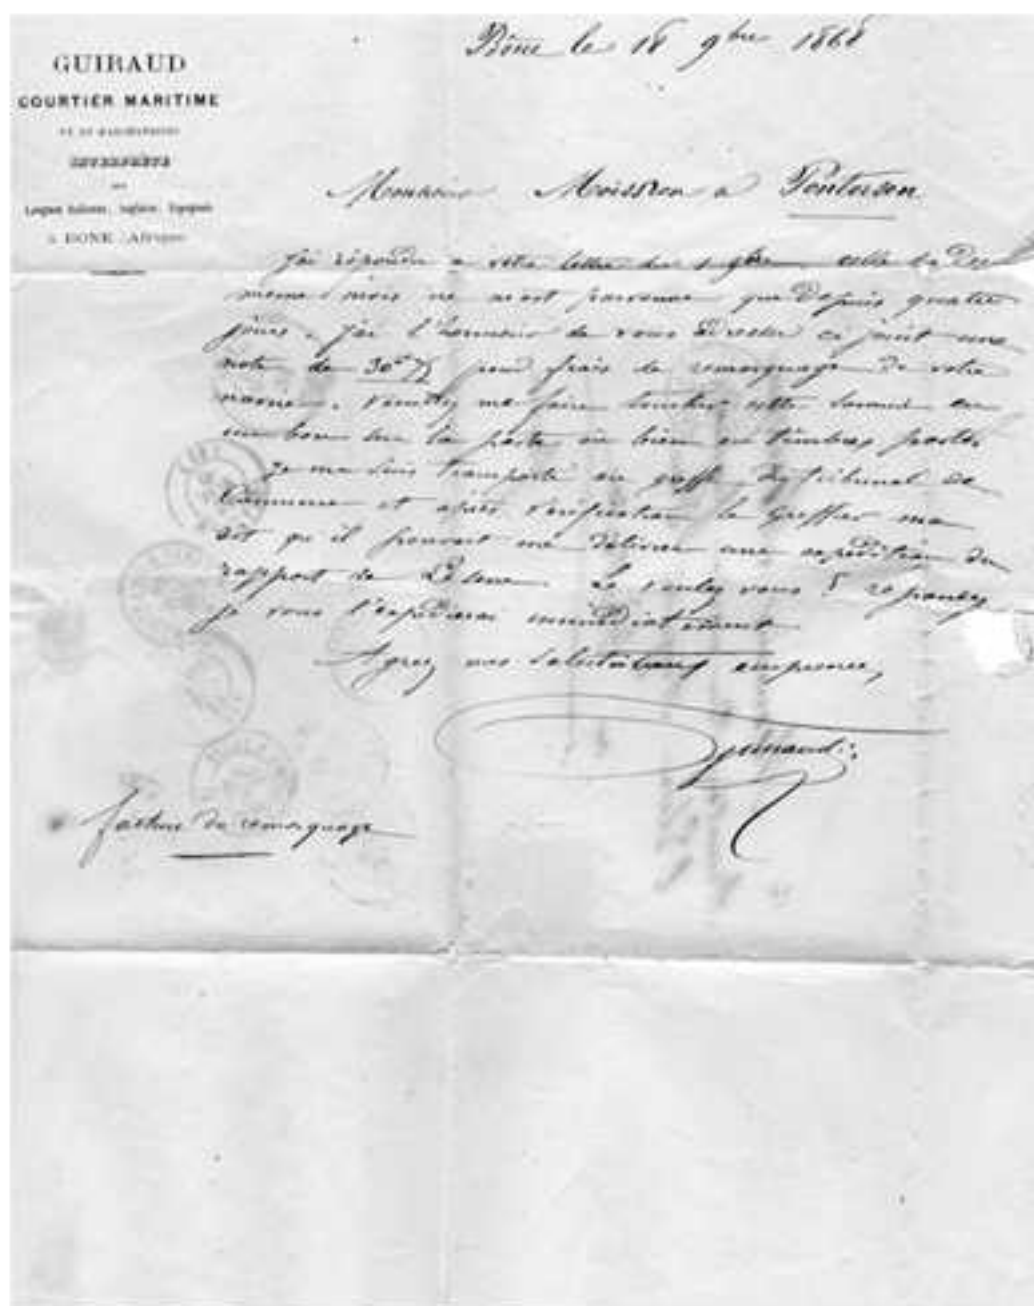 GUIRAUD
COURTIER MARITIME
ET DE MARCHANDISES
INTERPRÈTE
DES
Langues Italienne, Anglaise, Espagnole
à BONE (Afrique)
Bône le 18 9bre 1868
Monsieur Moisson à Pontorson
J'ai répondu à votre lettre du 9bre celle du
même mois ne m'est parvenue que depuis quatre
jours. j'ai l'honneur de vous adresser ci joint une
note de 30 pour frais de remorquage de votre
navire. veuillez me faire toucher cette somme en
un bon sur la poste ou bien en timbres postes
Je me suis transporté au greffe du tribunal de
Commerce et après vérification le Greffier me
dit qu'il pouvait me délivrer une expédition du
rapport de . Le voulez vous ? répondez
je vous l'expédierai immédiatement
Agréez mes salutations empressées
Guiraud
facture de remorquage